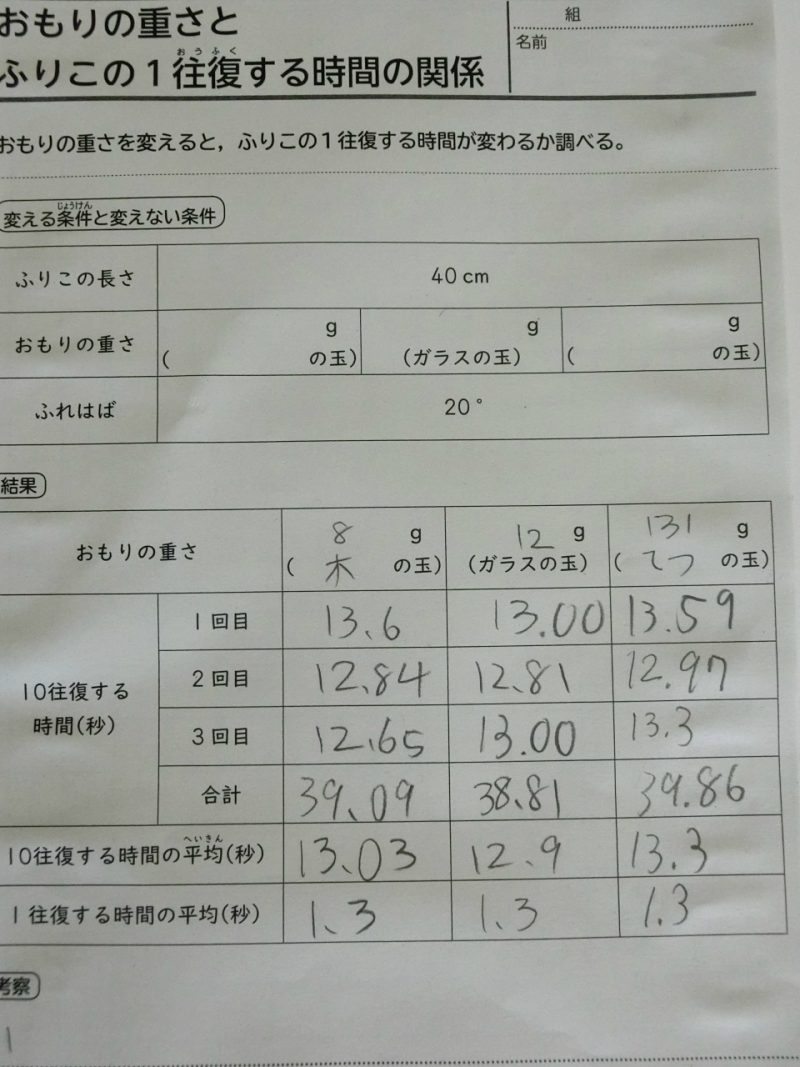 おもりの重さと
組
おうふく
ふりこの1往復する時間の関係
名前
おもりの重さを変えると，ふりこの1往復する時間が変わるか調べる。
じょうけん
変える条件と変えない条件
ふりこの長さ 40cm
おもりの重さ g g g
( の玉) (ガラスの玉) ( の玉)
ふれはば 20°
結果
おもりの重さ 8 g 12 g 131 g
( 木 の玉) (ガラスの玉) ( てつ の玉)
10往復する時間(秒)
1回目 13、6 13.00 13.59
2回目 12、84 12、81 12.97
3回目 12、65 13.00 13.3
合計 39、09 38、81 39.86
へいきん
10往復する時間の平均(秒) 13、03 12、9 13.3
1往復する時間の平均(秒) 1、3 1、3 1.3
考察